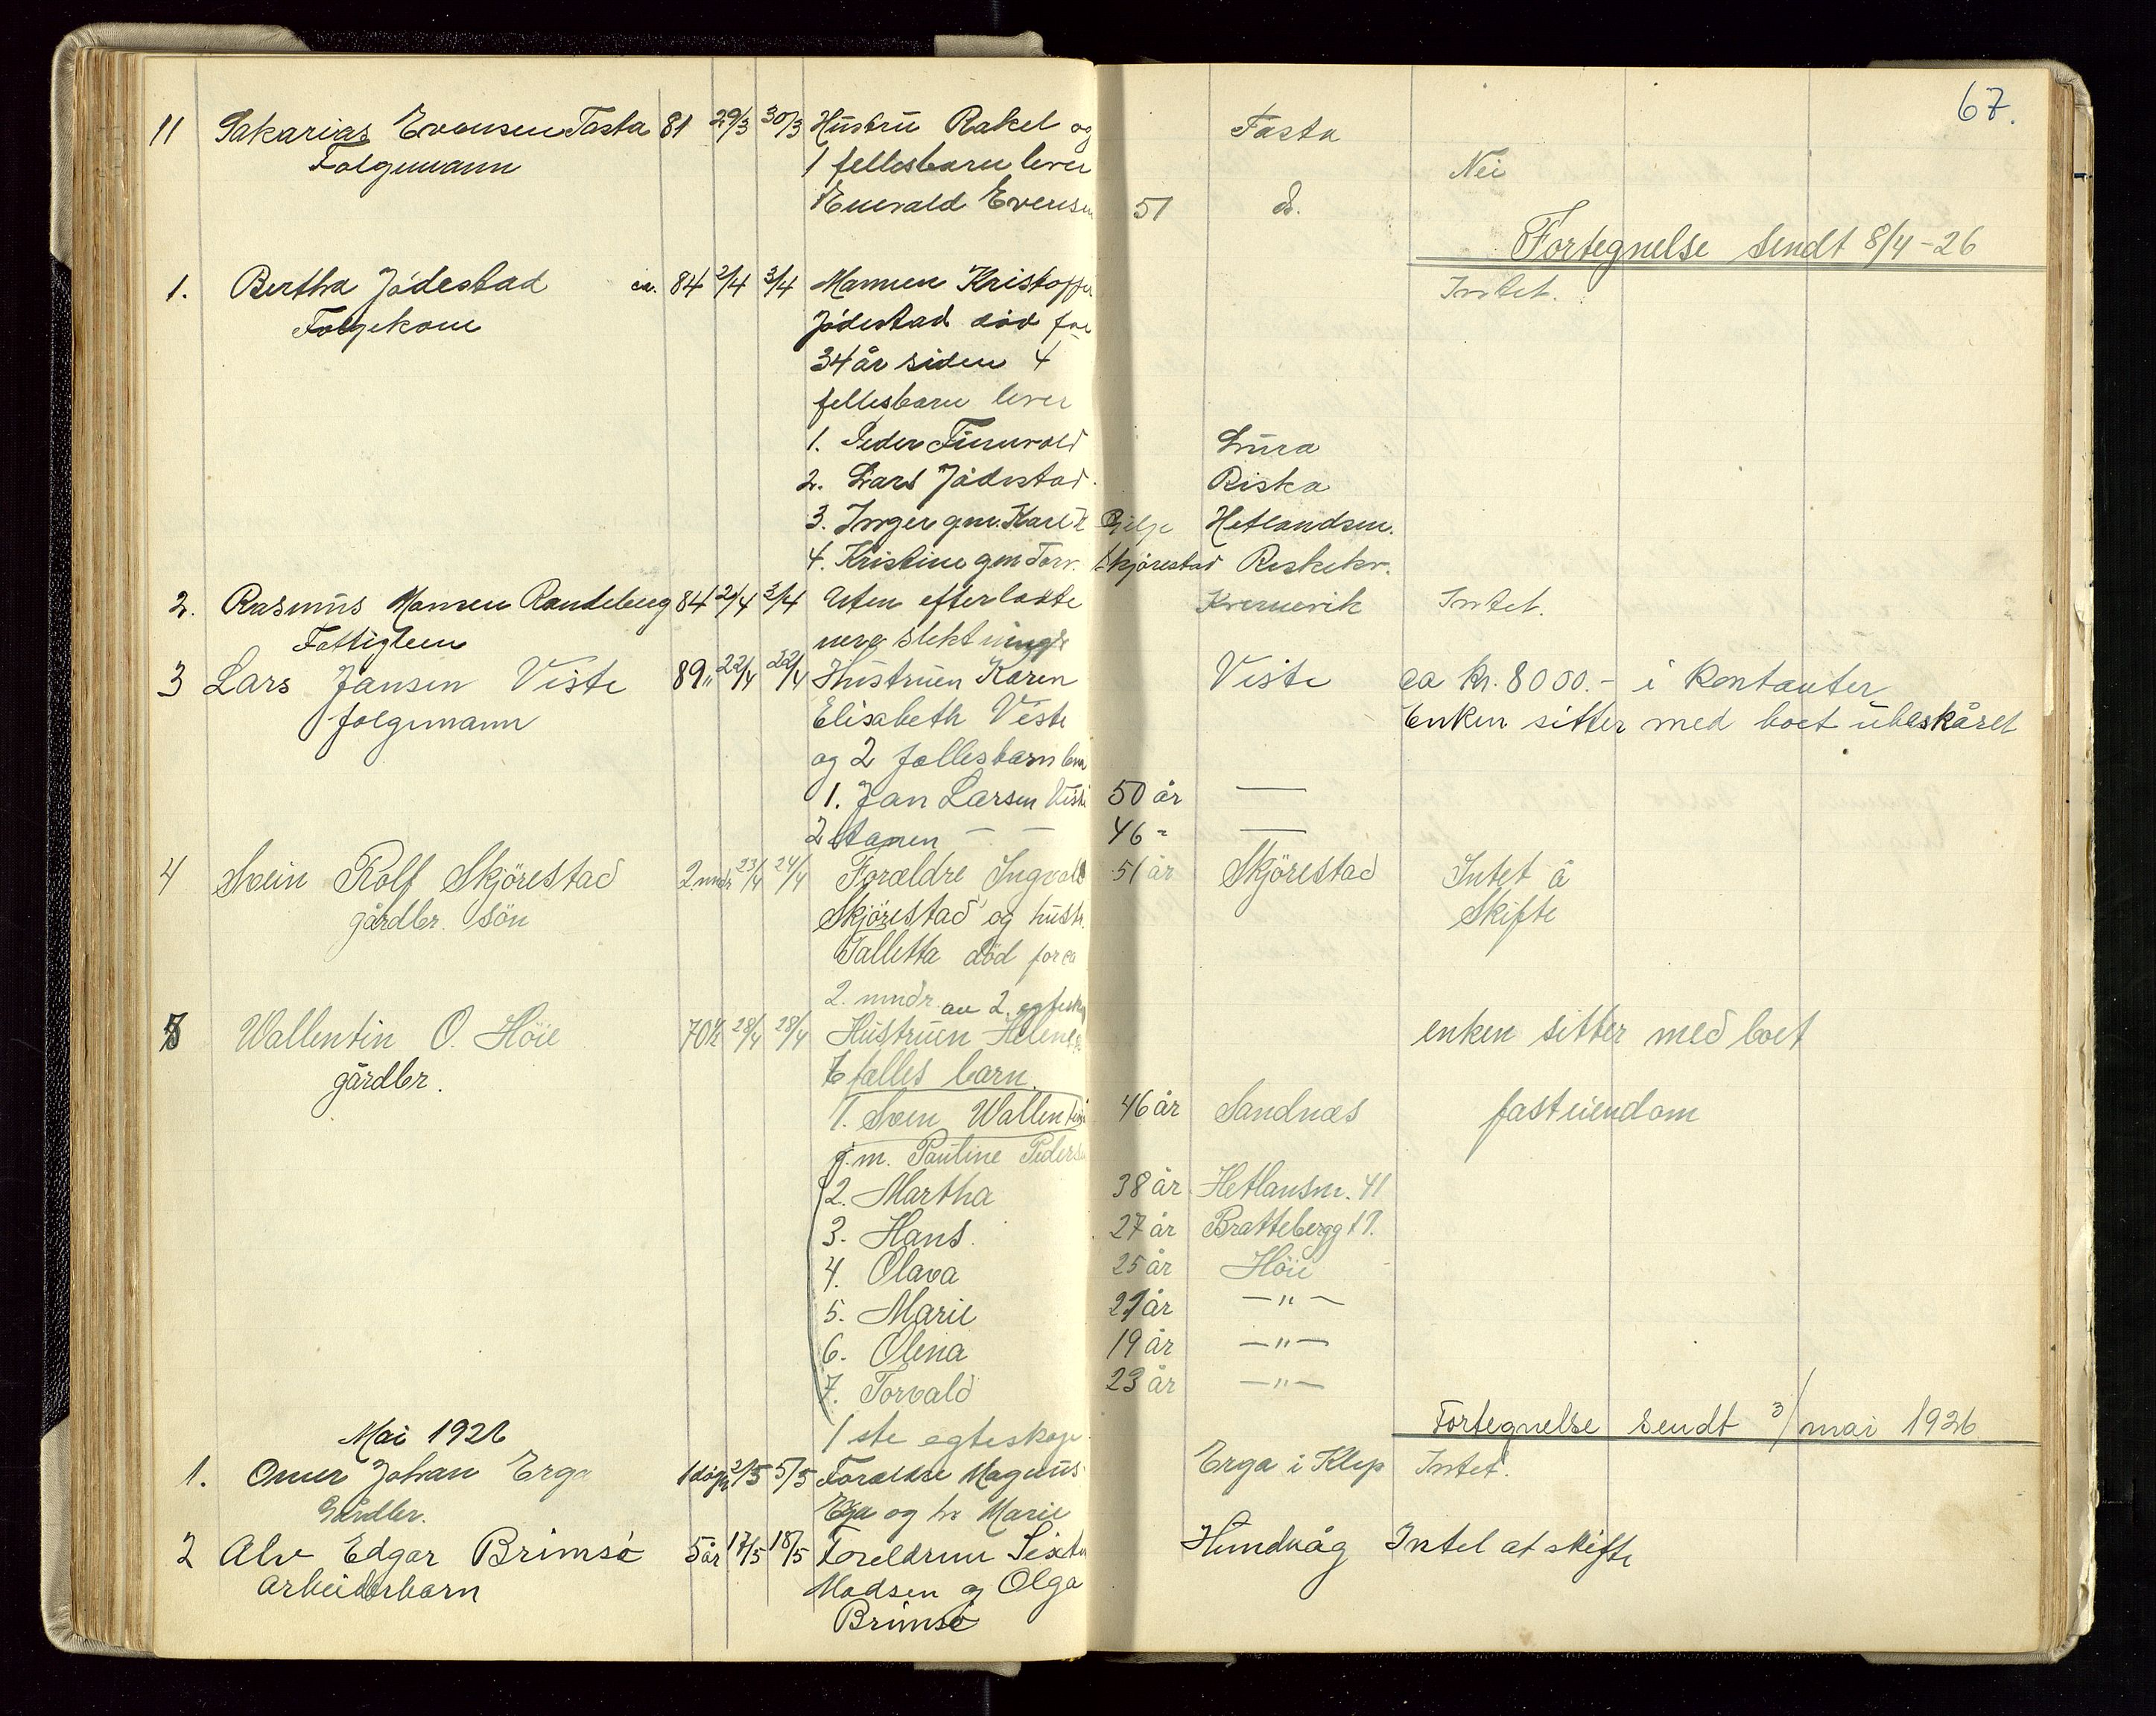 67.
11 Sakarias Evensen Tasta 81 29/3 30/3 Hustru Rakel og Tasta
Folgemann 1 fellesbarn lever Nei
Enevald Evensen 51 d.
Fortegnelse sendt 8/4-26
1. Bertha Jödestad ca. 84 2/4 3/4 Mannen Kristoffer Intet.
Folgekone Jödestad död for
34 år siden 4
fellesbarn lever
1. Peder Lura
2. Lars Jödestad. Riska
3. Inger gm. Karl Gilje Hetlandsm.
4. Kristine gm Torv. Skjörestad Riskekv.
2. Rasmus Hansen Randeberg 84 2/4 3/4 Uten efterlatte Kvernevik Intet.
Fattiglem nere slektninge
3 Lars Jansen Viste 89" 22/4 22/4 Hustruen Karen Viste ca kr. 8000.- i kontanter
folgemann Elisabeth Viste Enken sitter med boet ubeskåret
og 2 fallesbarn lever
1. Jan Larsen Viste 50 år —
2 — — 46 " —
4 Svein Rolf Skjörestad 2 mndr 23/4 24/4 Foræeldre Ingvald 51 år Skjörestad Intet å
gårdbr. sön Skjörestad og hustr. Skifte
Talletta död for ca
2. mndr.
5 Wallentin O. Höie 70 ½ 28/4 28/4 av 2. egtesk. Hustruen Helene enken sitter med boet
gårdbr. falles barn.
1. Sven Wallentin 46 år Sandnæs fast eiendom
g.m. Pauline Pedersen
2. Martha 38 år Hetlansm. 41
3. Hans. 27 år Brattebergg 17.
4. Olava 25 år Höie
5. Marie 21 år — " —
6. Olena 19 år — " —
7. Torvald 23 år — " —
1 ste egteskap. Fortegnelse sendt 3/mai 1926
Mai 1926
1. Omer Johan Erga 1 dögn 2/5 5/5 Foræeldre Magnus Erga i Klep Intet.
Gårdbr. Erga og h. Marie
2 Alv Edgar Brimsö 5 år 17/5 18/5 Foreldrene Hundvåg Intet at skifte
arbeiderbarn Madsen og Olga
Brimsö